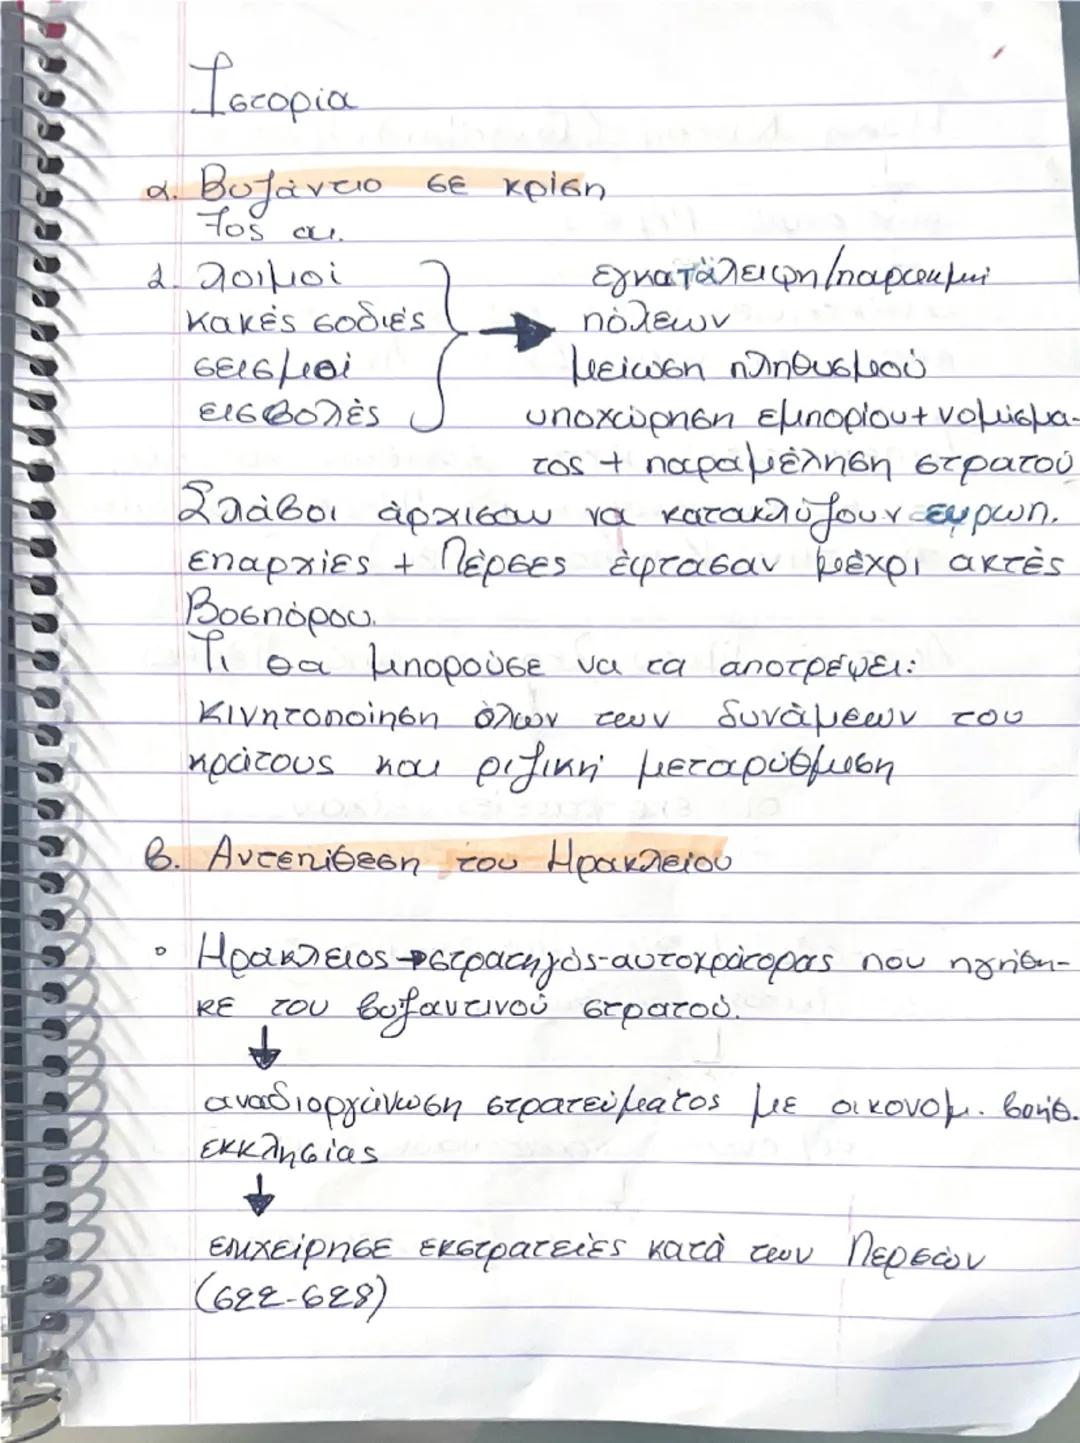 Ιστορία
α. Βυζάντιο σε κρίση
7ος αι.
1. λοιμοί
κακές σοδιές
σεισμοί
εισβολές
εγκατάλειψη/παρακμή
πόλεων
μείωση πληθυσμού
υποχώρηση εμπορίου + νομίσμα-
τος + παραμέληση στρατού
Σλάβοι άρχισαν να κατακλύζουν ευρωπ.
επαρχίες + Πέρσες έφτασαν μέχρι ακτές
Βοσπόρου.
Τι θα μπορούσε να τα αποτρέψει:
Κινητοποίηση όλων των δυνάμεων του
κράτους και ριζική μεταρύθμιση
β. Αντεπίθεση του Ηρακλείου
• Ηράκλειος → στρατηγός-αυτοκράτορας που ηγήθη-
κε του βυζαντινού στρατού.
↓
αναδιοργάνωση στρατεύματος με οικονομ. βοήθ.
εκκλησίας
↓
επιχείρησε εκστρατείες κατά των Περσών
(622-628)